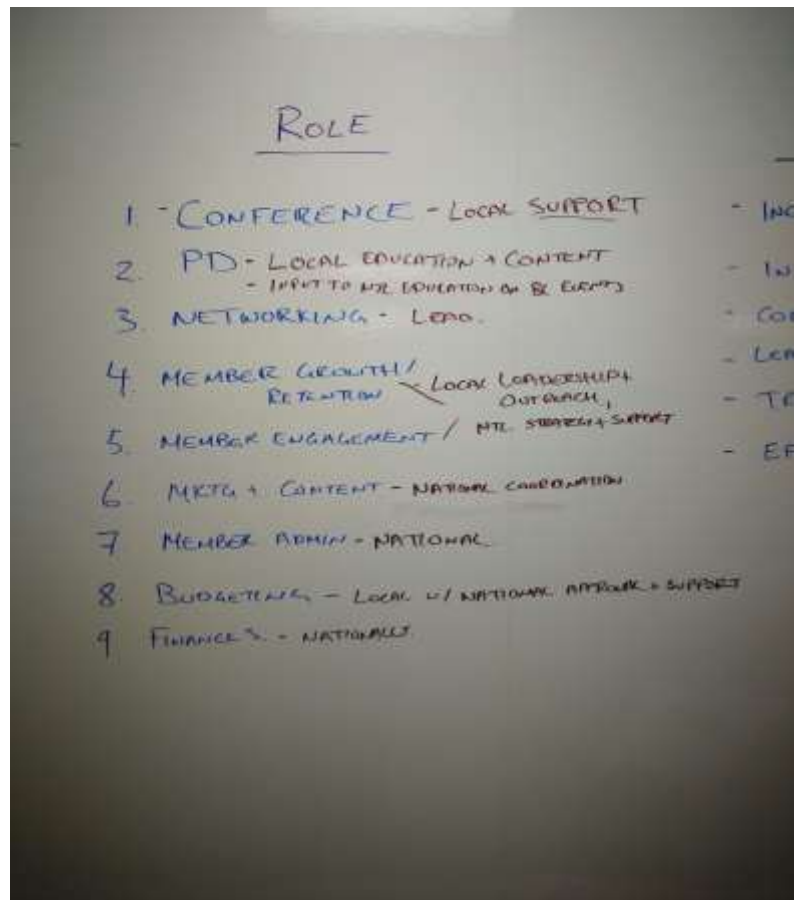 ROLE
1 - CONFERENCE - LOCAL SUPPORT
2. PD - LOCAL EDUCATION + CONTENT
- INPUT TO NTL EDUCATION OR BC EVENTS
3. NETWORKING - LEAD.
4. MEMBER GROWTH/
RETENTION - LOCAL LEADERSHIP +
OUTREACH,
5. MEMBER ENGAGEMENT / NTL STRATEGY + SUPPORT
6. MKTG + CONTENT - NATIONAL COORDINATION
7 MEMBER ADMIN - NATIONAL
8. BUDGETING - LOCAL W/ NATIONAL APPROVAL + SUPPORT
9 FINANCES - NATIONALLY